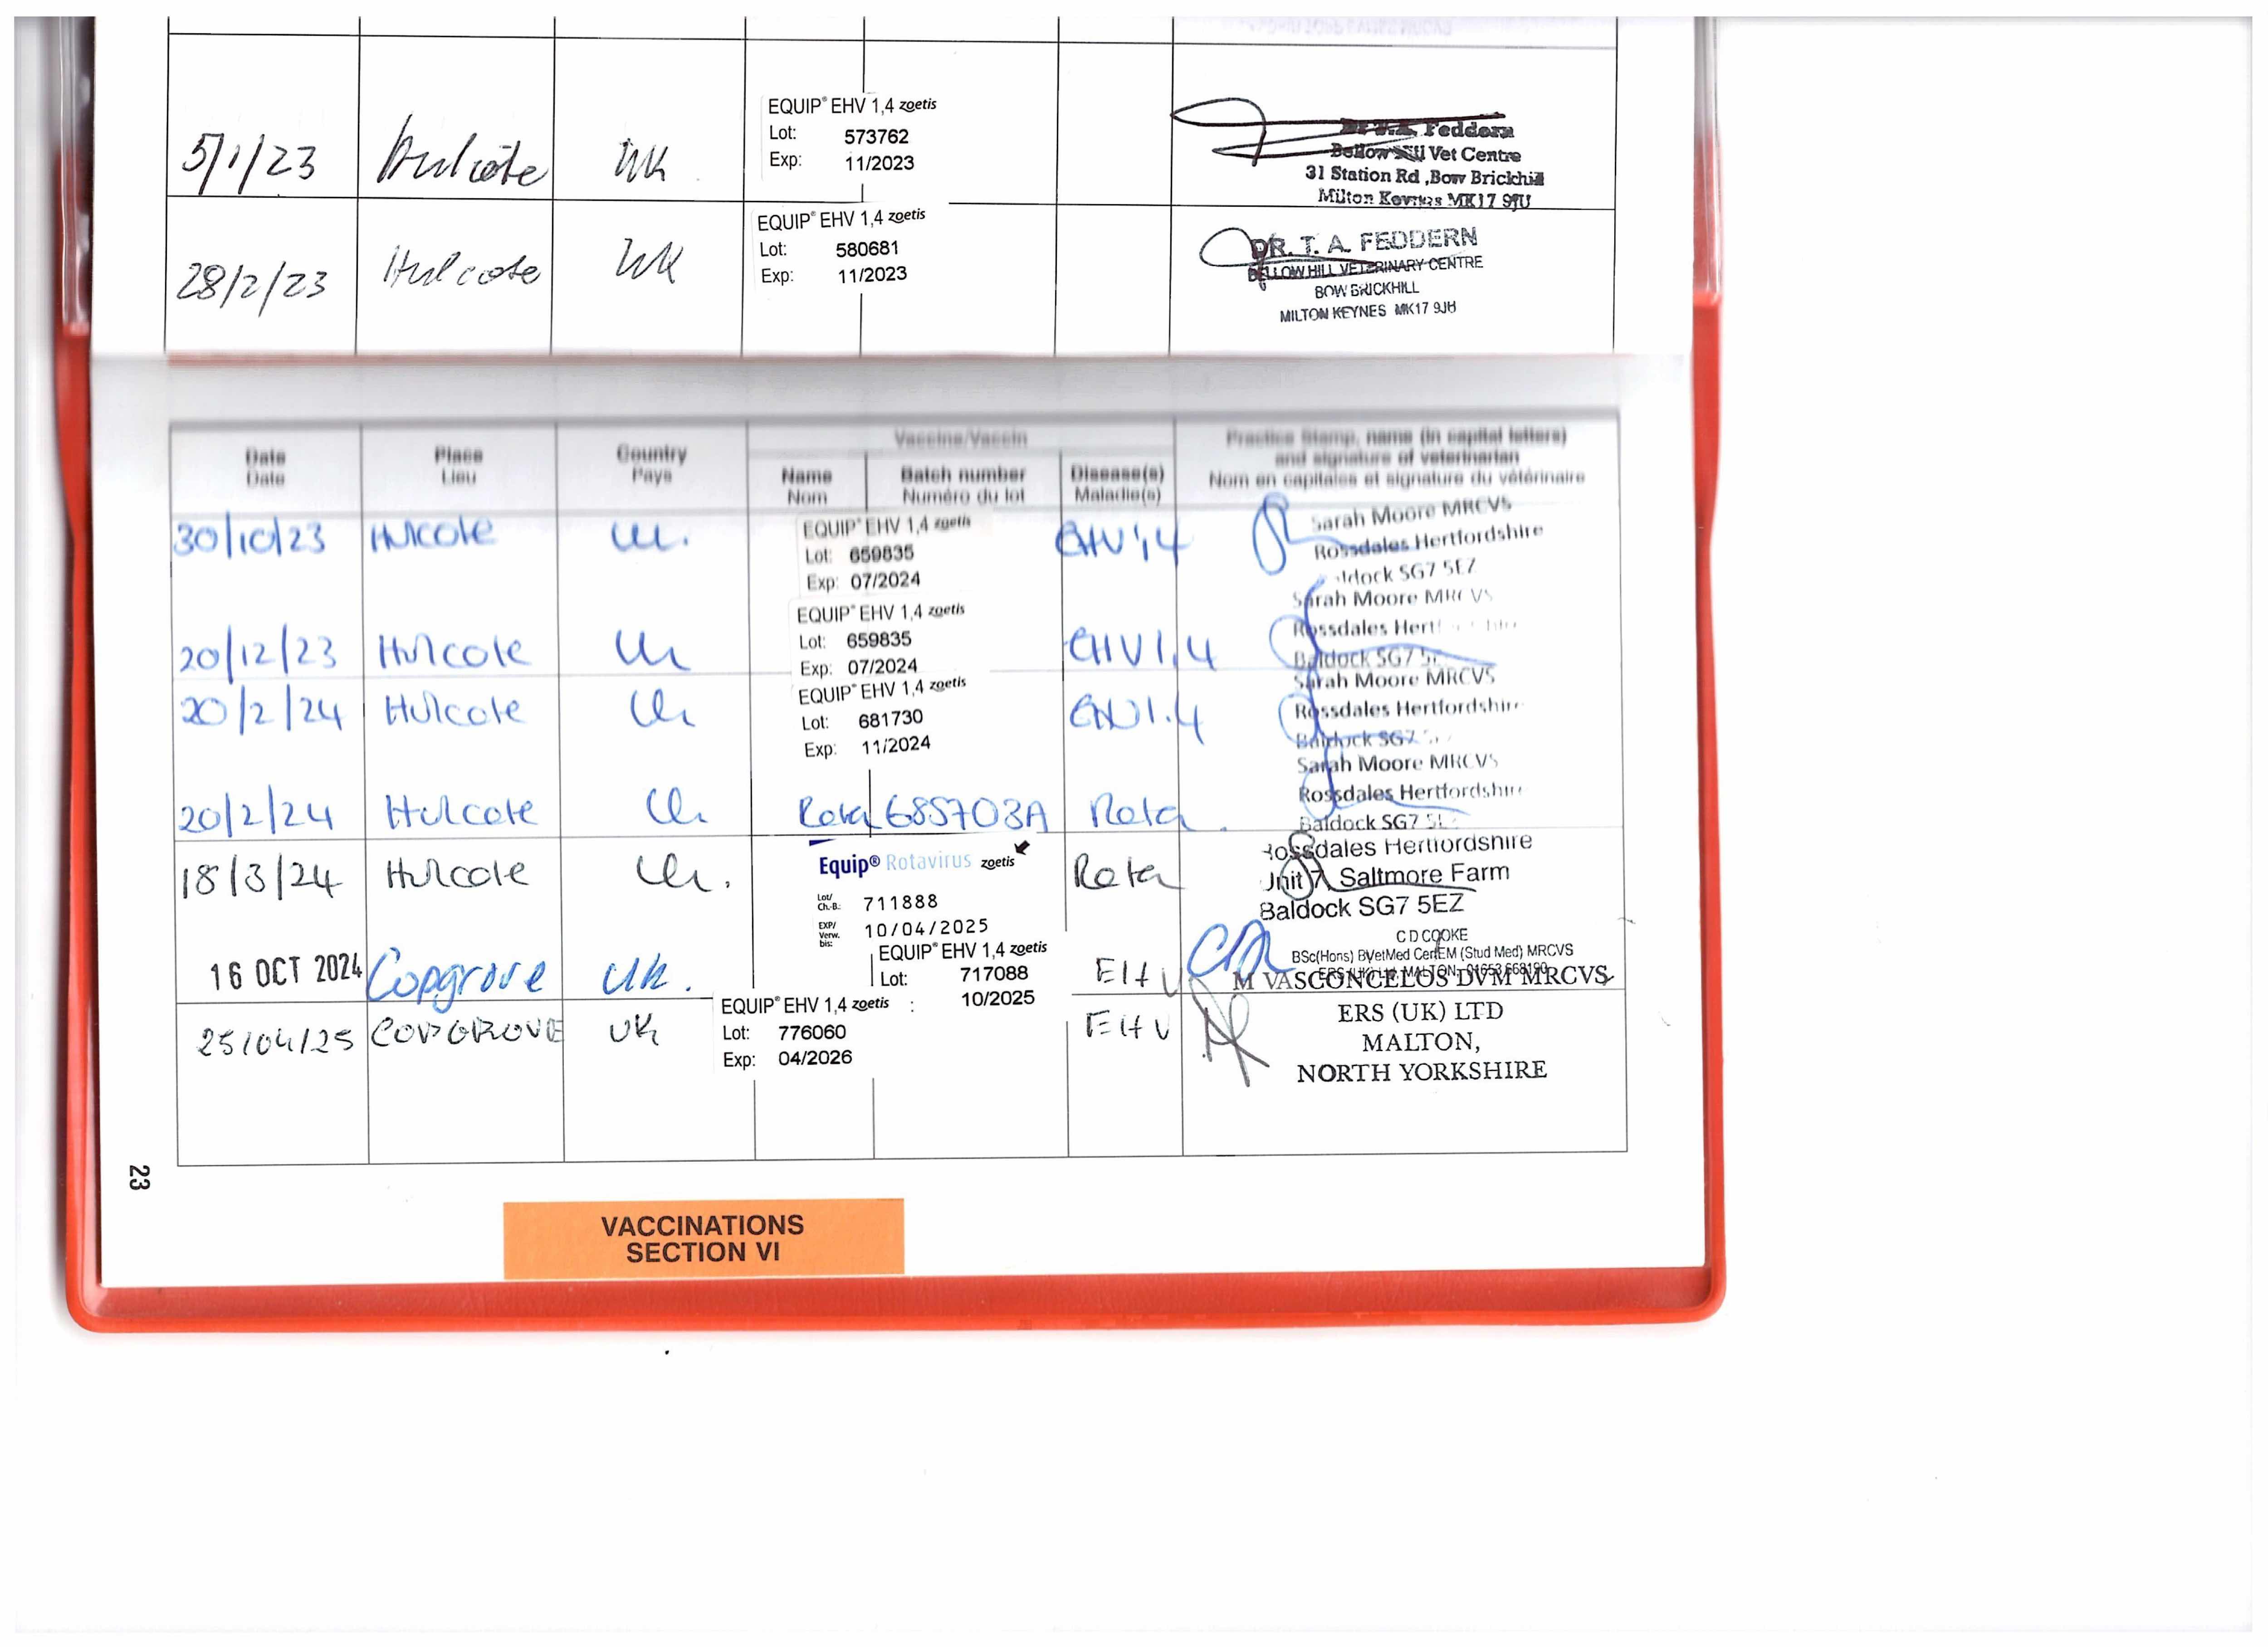 5/1/23 Hulcote UK
EQUIP® EHV 1,4 zoetis
Lot: 573762
Exp: 11/2023
Feddern
Bellow Hill Vet Centre
31 Station Rd ,Bow Brickhill
Milton Keynes MK17 9JU
28/2/23 Hulcote UK
EQUIP® EHV 1,4 zoetis
Lot: 580681
Exp: 11/2023
DR. T. A. FEDDERN
BELLOW HILL VETERINARY CENTRE
BOW BRICKHILL
MILTON KEYNES MK17 9JH
Date Place Country Vaccine/Vaccin Practice Stamp, name (in capital letters)
Date Lieu Pays and signature of veterinarian
Name Batch number Disease(s) Nom en capitales et signature du vétérinaire
Nom Numéro du lot Maladie(s)
30/10/23 Hulcote UK. EHV 1,4
EQUIP® EHV 1,4 zoetis
Lot: 659835
Exp: 07/2024
Sarah Moore MRCVS
Rossdales Hertfordshire
SG7 5EZ
20/12/23 Hulcote UK EHV 1,4
EQUIP® EHV 1,4 zoetis
Lot: 659835
Exp: 07/2024
Sarah Moore MRCVS
Rossdales
Baldock SG7
20/2/24 Hulcote UK EHV1.4
EQUIP® EHV 1,4 zoetis
Lot: 681730
Exp: 11/2024
Sarah Moore MRCVS
Rossdales Hertfordshire
Baldock SG7
20/2/24 Hulcote UK Rota 685703A Rota
Sarah Moore MRCVS
Rossdales Hertfordshire
Baldock SG7
18/3/24 Hulcote UK. Rota
Equip® Rotavirus zoetis
Lot/
Ch.-B.: 711888
EXP/
Verw.
bis: 10/04/2025
Rossdales Hertfordshire
Unit 7, Saltmore Farm
Baldock SG7 5EZ
16 OCT 2024 Copgrove UK. EHV
EQUIP® EHV 1,4 zoetis
Lot: 717088
: 10/2025
C D COOKE
BSc(Hons) BVetMed CertEM (Stud Med) MRCVS
ERS (UK) Ltd, MALTON,
25/04/25 COPGROVE UK EHV
EQUIP® EHV 1,4 zoetis
Lot: 776060
Exp: 04/2026
M VASCONCELOS DVM MRCVS
ERS (UK) LTD
MALTON,
NORTH YORKSHIRE
23
VACCINATIONS
SECTION VI